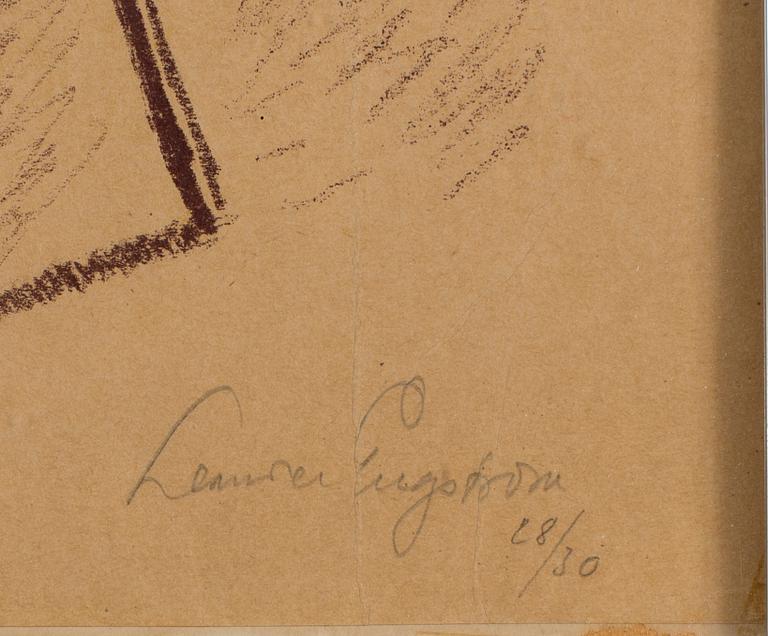 Leander Engström
28/30